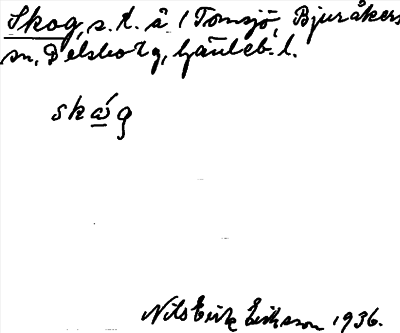 Skog, s. t. å 1 Tomsjö, Bjuråkers
sn, Delsbo tg, Gävleb. l.
skåg
Nils Erik Eriksson 1936.